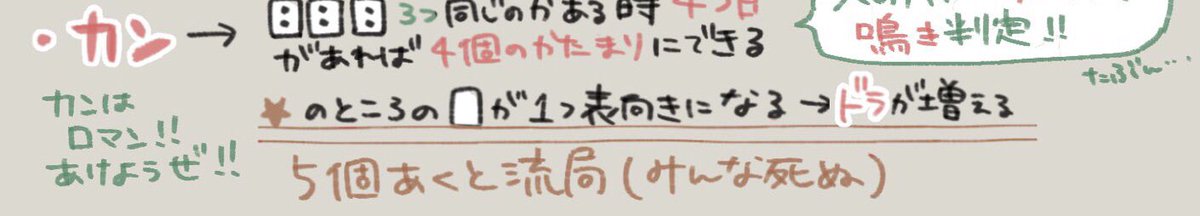 ・カン→ 3つ同じのがある時 4つ目
があれば 4個のかたまりにできる
鳴き判定!!
たぶん…
★のところの が1つ表向きになる→ドラが増える
カンは
ロマン!!
あけようぜ!!
5個あくと流局(みんな死ぬ)